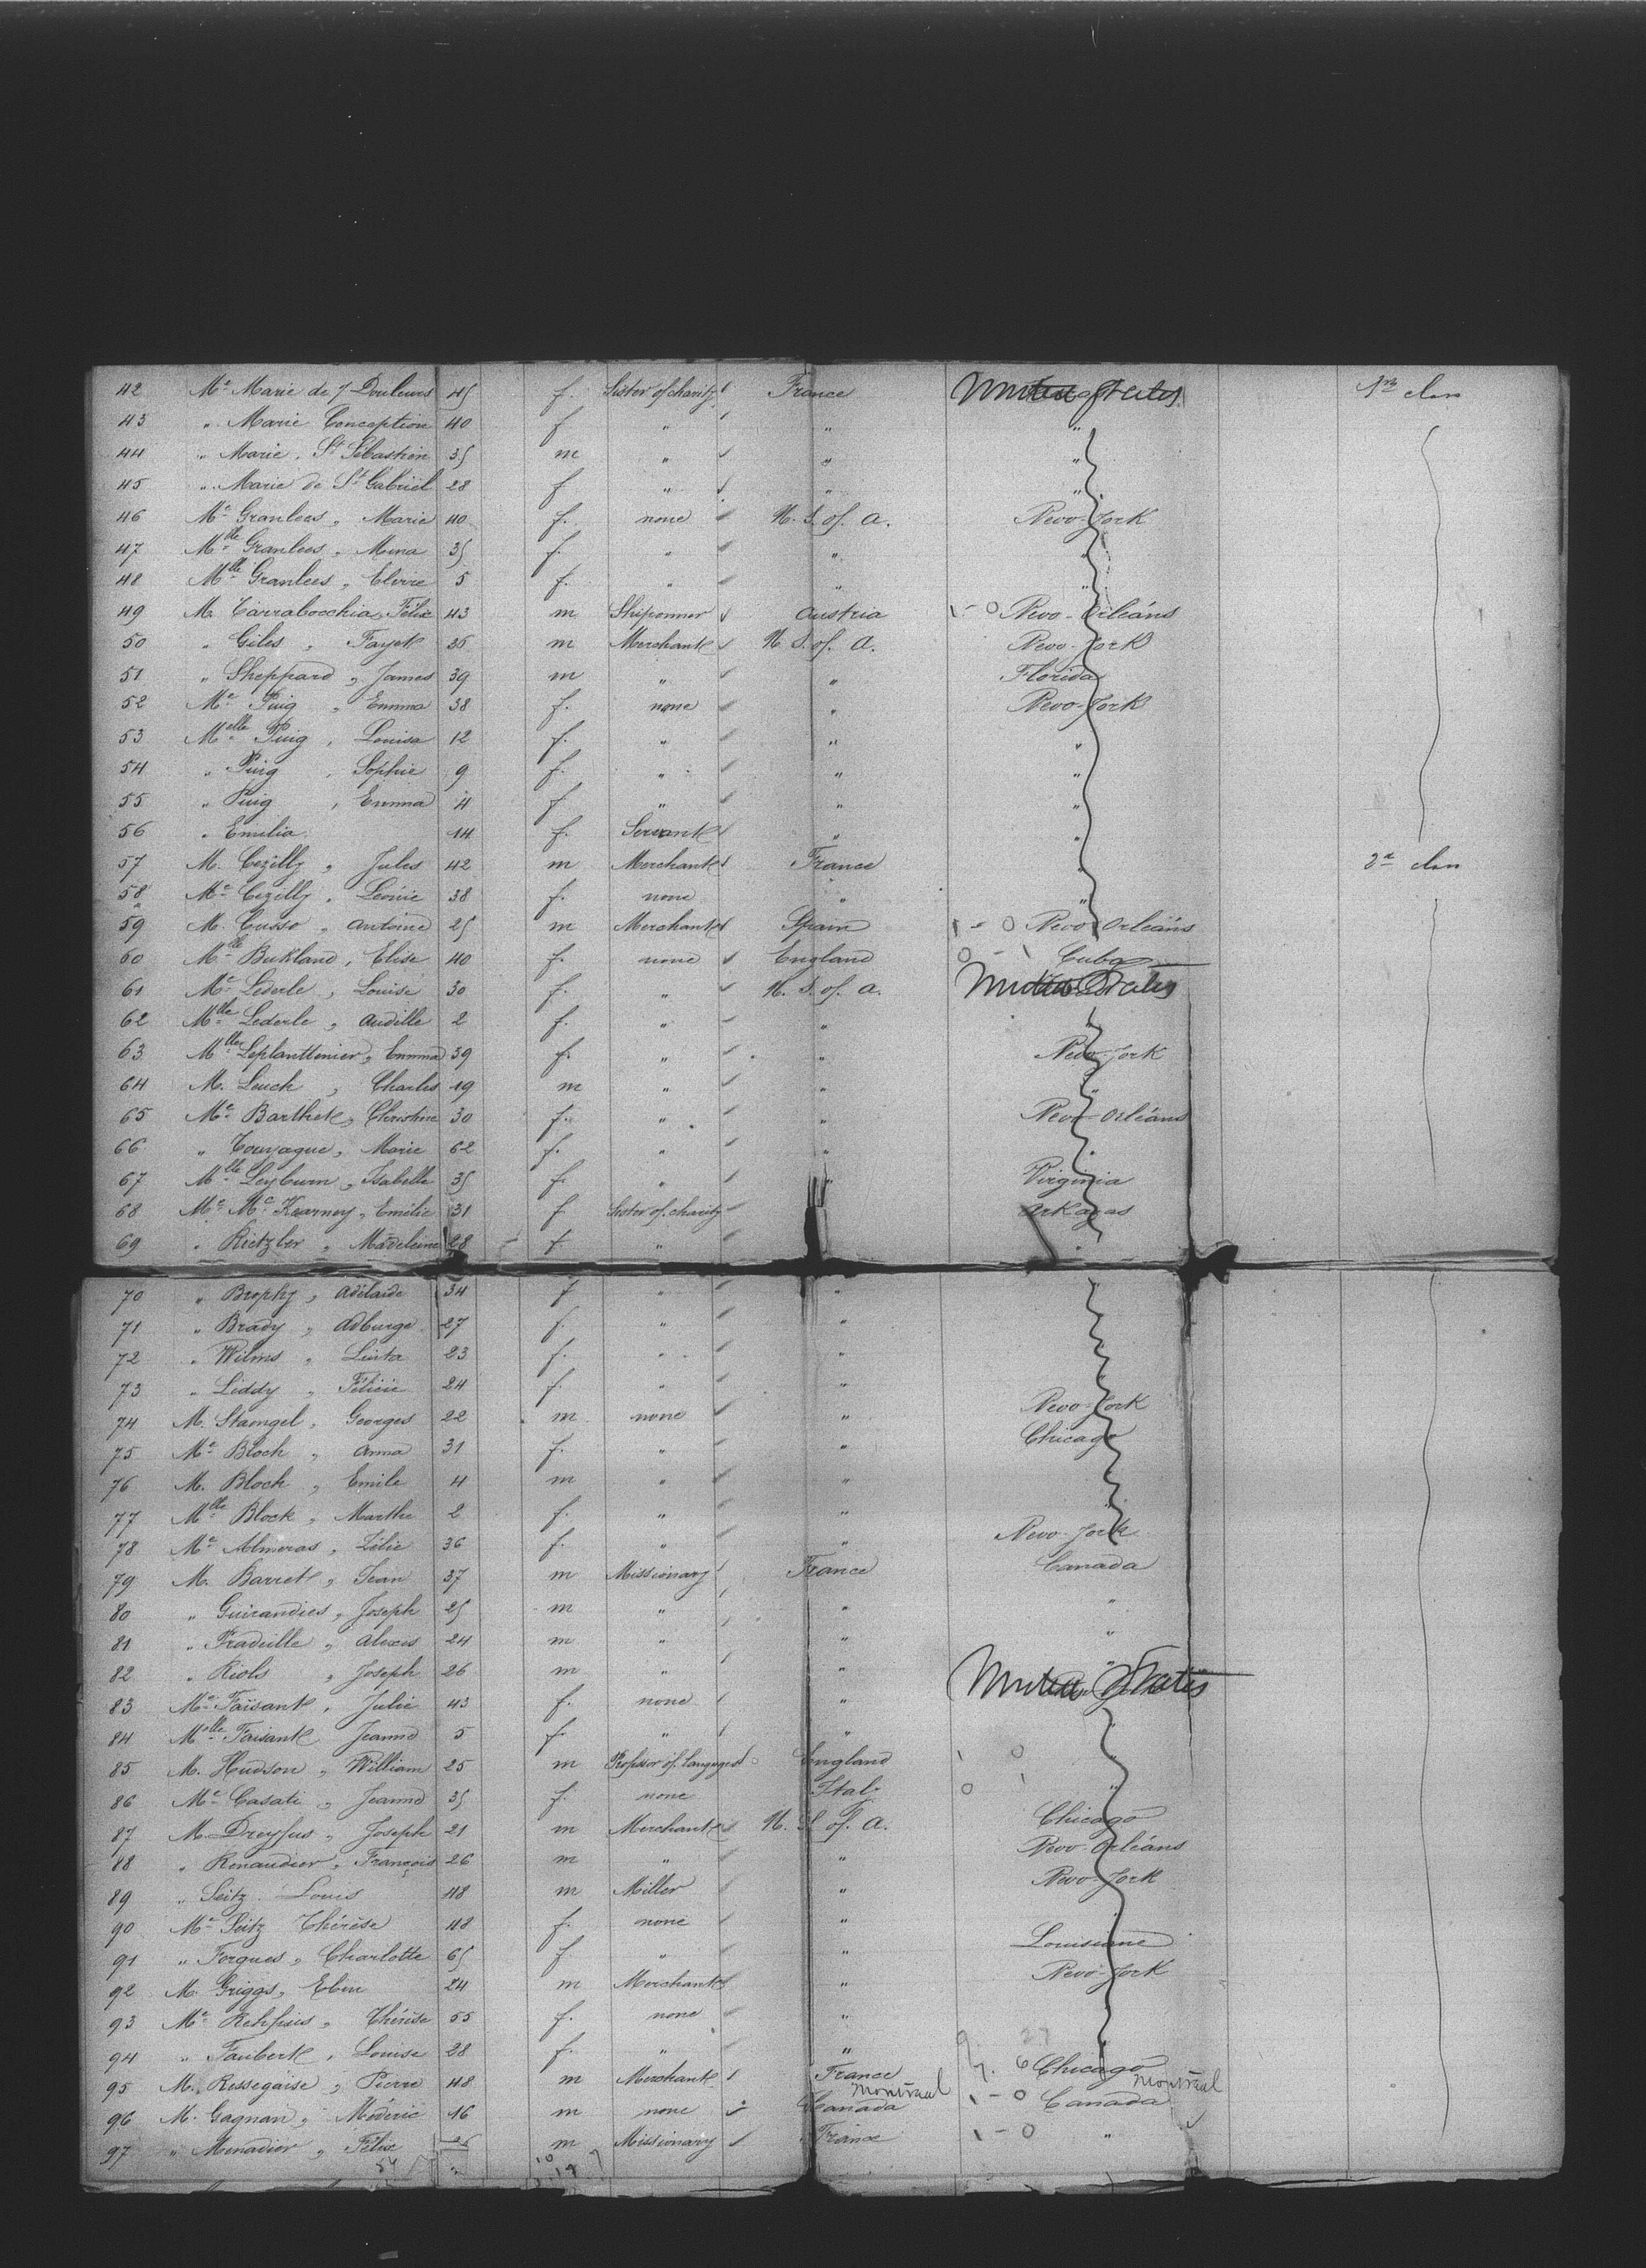 42 Me Marie de 7 Douleurs 45 f. Sister of charity France United States 1re class
43 " Marie Conception 40 f " " "
44 " Marie, St Sébastien 35 m " " "
45 " Marie de St Gabriel 28 f " " "
46 Me Granlees, Marie 40 f. none U. S. of. A. New-York
47 Mlle Granlees, Mina 35 f. " " "
48 Mlle Granlees, Elvire 5 f. " " "
49 M. Tarrabocchia, Félix 43 m Shipowner Austria 1-0 New-Orléans
50 " Giles, Fayet 36 m Merchant U. S. of. A. New-York
51 " Sheppard, James 39 m " " Florida
52 Me Puig, Emma 38 f. none " New-York
53 Melle Puig, Louisa 12 f. " " "
54 " Puig, Sophie 9 f. " " "
55 " Puig, Emma 4 f " " "
56 " Emilia 14 f. Servant " "
57 M. Cezilly, Jules 42 m Merchant France " 2e class
58 Me Cezilly, Léonie 38 f. none " "
59 M. Cusso, Antoine 25 m Merchant Spain 1-0 New-Orléans
60 Mlle Bukland, Elise 40 f. none England 0-1 Cuba
61 Me Lederle, Louise 30 f. " U. S. of. A. United States
62 Mlle Lederle, Audille 2 f. " " "
63 Mlles Leplanttenier, Emma 39 f. " " New-York
64 M. Leuch, Charles 19 m " " "
65 Me Barthet, Christine 30 f. " " New-Orléans
66 " Tournaque, Marie 62 f. " " "
67 Mlle Leyburn, Isabelle 35 f. " Virginia
68 Me Mc Kearney, Emélie 31 f Sister of charity Arkansas
69 " Rietzler, Madeleine 28 f "  "
70 " Brophy, Adélaide 34 f " "
71 " Brady, Adburge 27 f. " "
72 " Wilms, Liuta 23 f. " "
73 " Liddy, Félicie 24 f. " "
74 M. Stamgel, Georges 22 m none " New-York
75 Me Bloch, Anna 31 f. " " Chicago
76 M. Bloch, Emile 4 m " "
77 Mlle Block, Marthe 2 f. " " "
78 Me Almeras, Zélie 36 f. " " New-York
79 M. Barret, Jean 37 m Missionary France Canada
80 " Guirandies, Joseph 25 m " " "
81 " Fradeille, Alexis 24 m " " "
82 " Riols, Joseph 26 m " " "
83 Me Faisant, Julie 43 f. none " United States
84 Melle Faisant Jeanne 5 f. " " "
85 M. Hudson, William 25 m Professor of Languages England 1 0
86 Me Casati, Jeanne 35 f. none Italy 0 1 "
87 M. Dreyfus, Joseph 21 m Merchant U. S. of. A. Chicago
88 " Renaudier, François 26 m " " New-Orléans
89 " Seitz Louis 48 m Miller " New-York
90 Me Seitz Thérèse 48 f. none " "
91 " Forgues, Charlotte 65 f " " Louisiane
92 M. Griggs, Eben 24 m Merchant " New-York
93 Me Rehfuis, Thérèse 55 f. none "
94 " Faubert, Louise 28 f. " " 9 27
95 M. Ressegaise, Pierre 48 m Merchant France 6 Chicago
Montréal Montréal
96 M. Gagnan, Méderic 16 m none Canada 1-0 Canada
97 " Menadier, Félix 26 m Missionary France 1-0 "